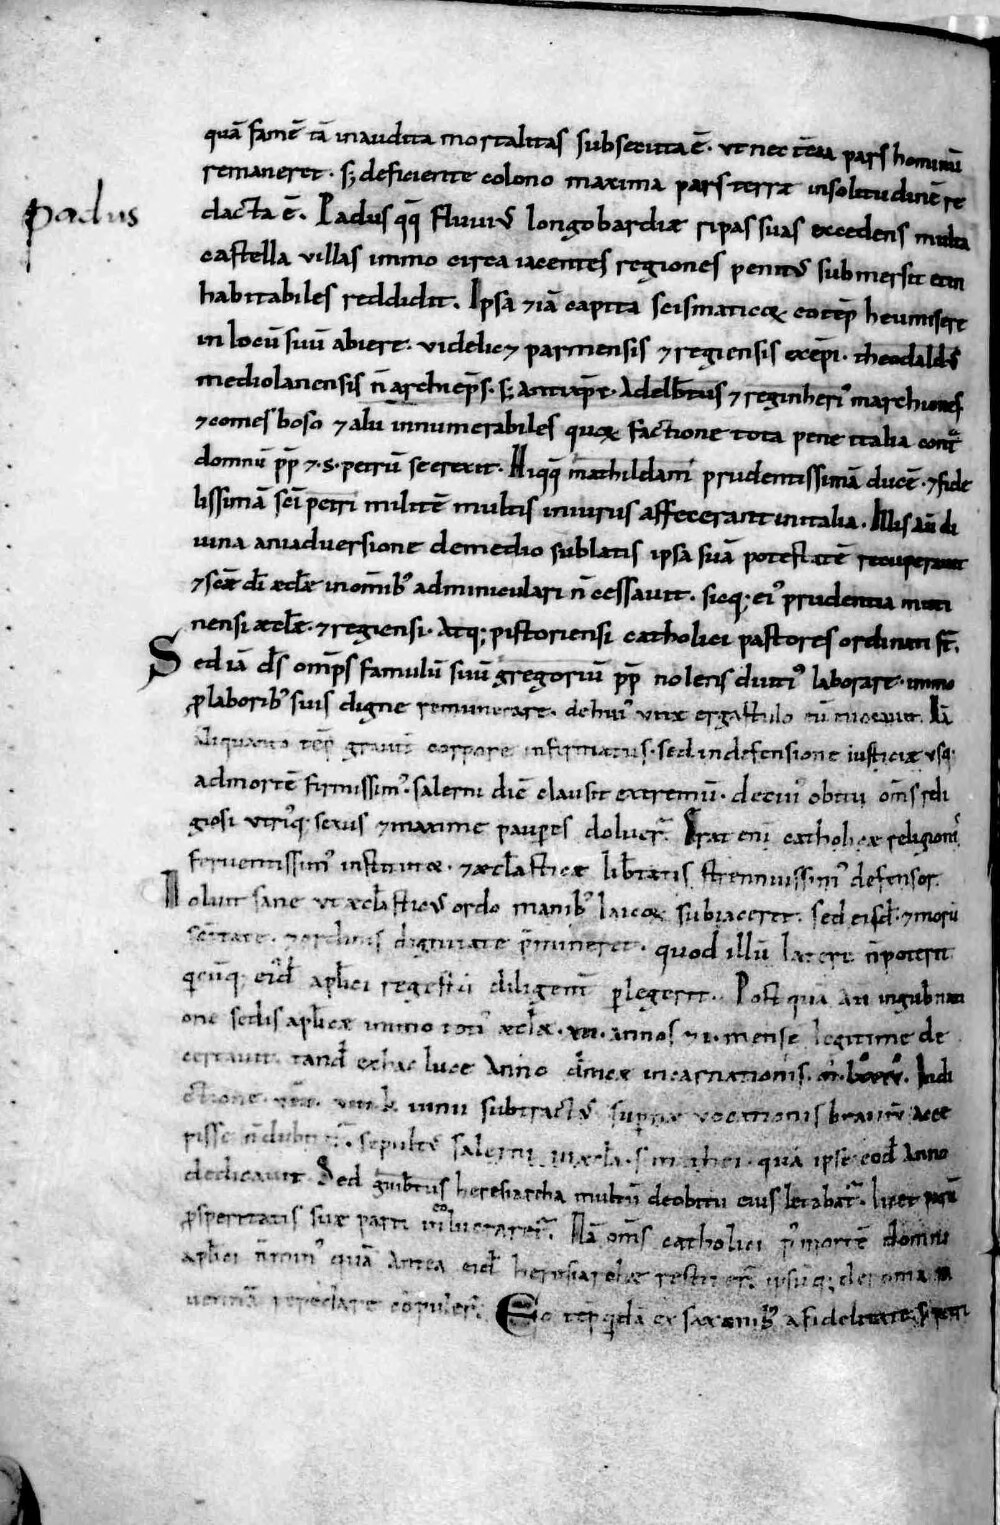 padus
quā famē tā inaudita mortalitas subsecuta ē· ut nec t̄cia pars hominū
remaneret· s; deficiente colono maxima pars terrę in solitudinē re
dacta ē. Padus qq̄ fluuius longobardiæ ripas suas excedens multa
castella uillas immo circa iacentes regiones penitus submersit et in
habitabiles reddidit. Ipsa &iā capita scismaticoꝝ eo tēp̄ heu misere
in locū suū abiere· uidelic& parmensis & regiensis exēp̄i· theodaldus
mediolanensis n̄ archiep̄s· s; antixp̄c· Adelb̄tus & reginherius marchiones
& comes boso & alii innumerabiles quoꝝ factione tota pene italia cont̄ra
domnū pp̄ &·s·petrū se erexit· Hi qq̄ mathildam prudentissimā ducē· & fide
lissimā sc̄i petri militē multis iniuriis affecerant in italia· Illis aū di
uina aniaduersione de medio sublatis ipsa suā potestatē recuperauit
& sc̄æ dī æcl̄æ in om̄ib; adminiculari n̄ cessauit· sicq; ei; prudentia muti
nensi æcl̄æ· & regiensi· Atq; pistoriensi catholici pastores ordinati st̄.
Sed iā d̄s om̄ps famulū suū gregoriū pp̄ nolens diuti; laborare· immo
ꝓ laborib; suis digne remunerare· de hui; uitæ ergastulo eū euocauit· Iā
aliquanto tēp̄ graui corpore infirmatus· sed in defensione iusticiæ usq;
ad mortē firmissim;· salerni diē clausit extremū· de cui; obitu om̄s reli
giosi utriq; sexus & maxime paup̄es doluer̄· Erat eni catholicæ religionis
feruentissim; institutor· & æcl̄asticæ lib̄tatis strennuissim; defensor.
Noluit sane ut æcl̄asticus ordo manib; laicoꝝ subiaceret· sed eisd̄· & morū
sc̄itate· & ordinis dignitate p̄mineret· quod illū latere n̄ poterit
qicūq; eiusd̄ ap̄lici regestū diligent̄ p̄legerit· Post quā aū in gub̄nati
one sedis ap̄licæ immo toti; æcl̄æ· xii· annos & i· mense legitime de
certauit· tand̄ ex hac luce Anno d̄nicæ incarnationis· m̄·lxxxv· Indi
ctione· viii· viii k iunii subtractus sup̄næ uocationis brauiū acce
pisse n̄ dubitat̄· sepultus salerni in æcl̄a· s· mathei· quā ipse eod̄ Anno
dedicauit· Sed guib̄tus heresiarcha multū de obitu eius letabat̄· licet parū
ꝓsperitatis suæ parti in eo lucraret̄· Nā om̄s catholici p; mortē domni
ap̄lici n̄ min; quā antea eid̄ heresiarchæ restiter̄ ipsūq; de roma ra
uennā repedare cōpuler̄· Eo tēp̄ qidā ex saxonib; a fidelitate s· petri